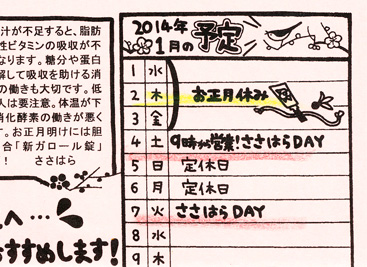 汁が不足すると、脂肪
性ビタミンの吸収が不
なります。糖分や蛋白
解して吸収を助ける消
の働きも大切です。低
人は要注意。体温が下
消化酵素の働きが悪く
す。お正月明けには胆
合「新ガロール錠」
! ささはら
へ…
おすすめします!
2014年
1月の予定
1 水
2 木 お正月休み
3 金
4 土 9時から営業!ささはらDAY
5 日 定休日
6 月 定休日
7 火 ささはらDAY
8 水
9 木